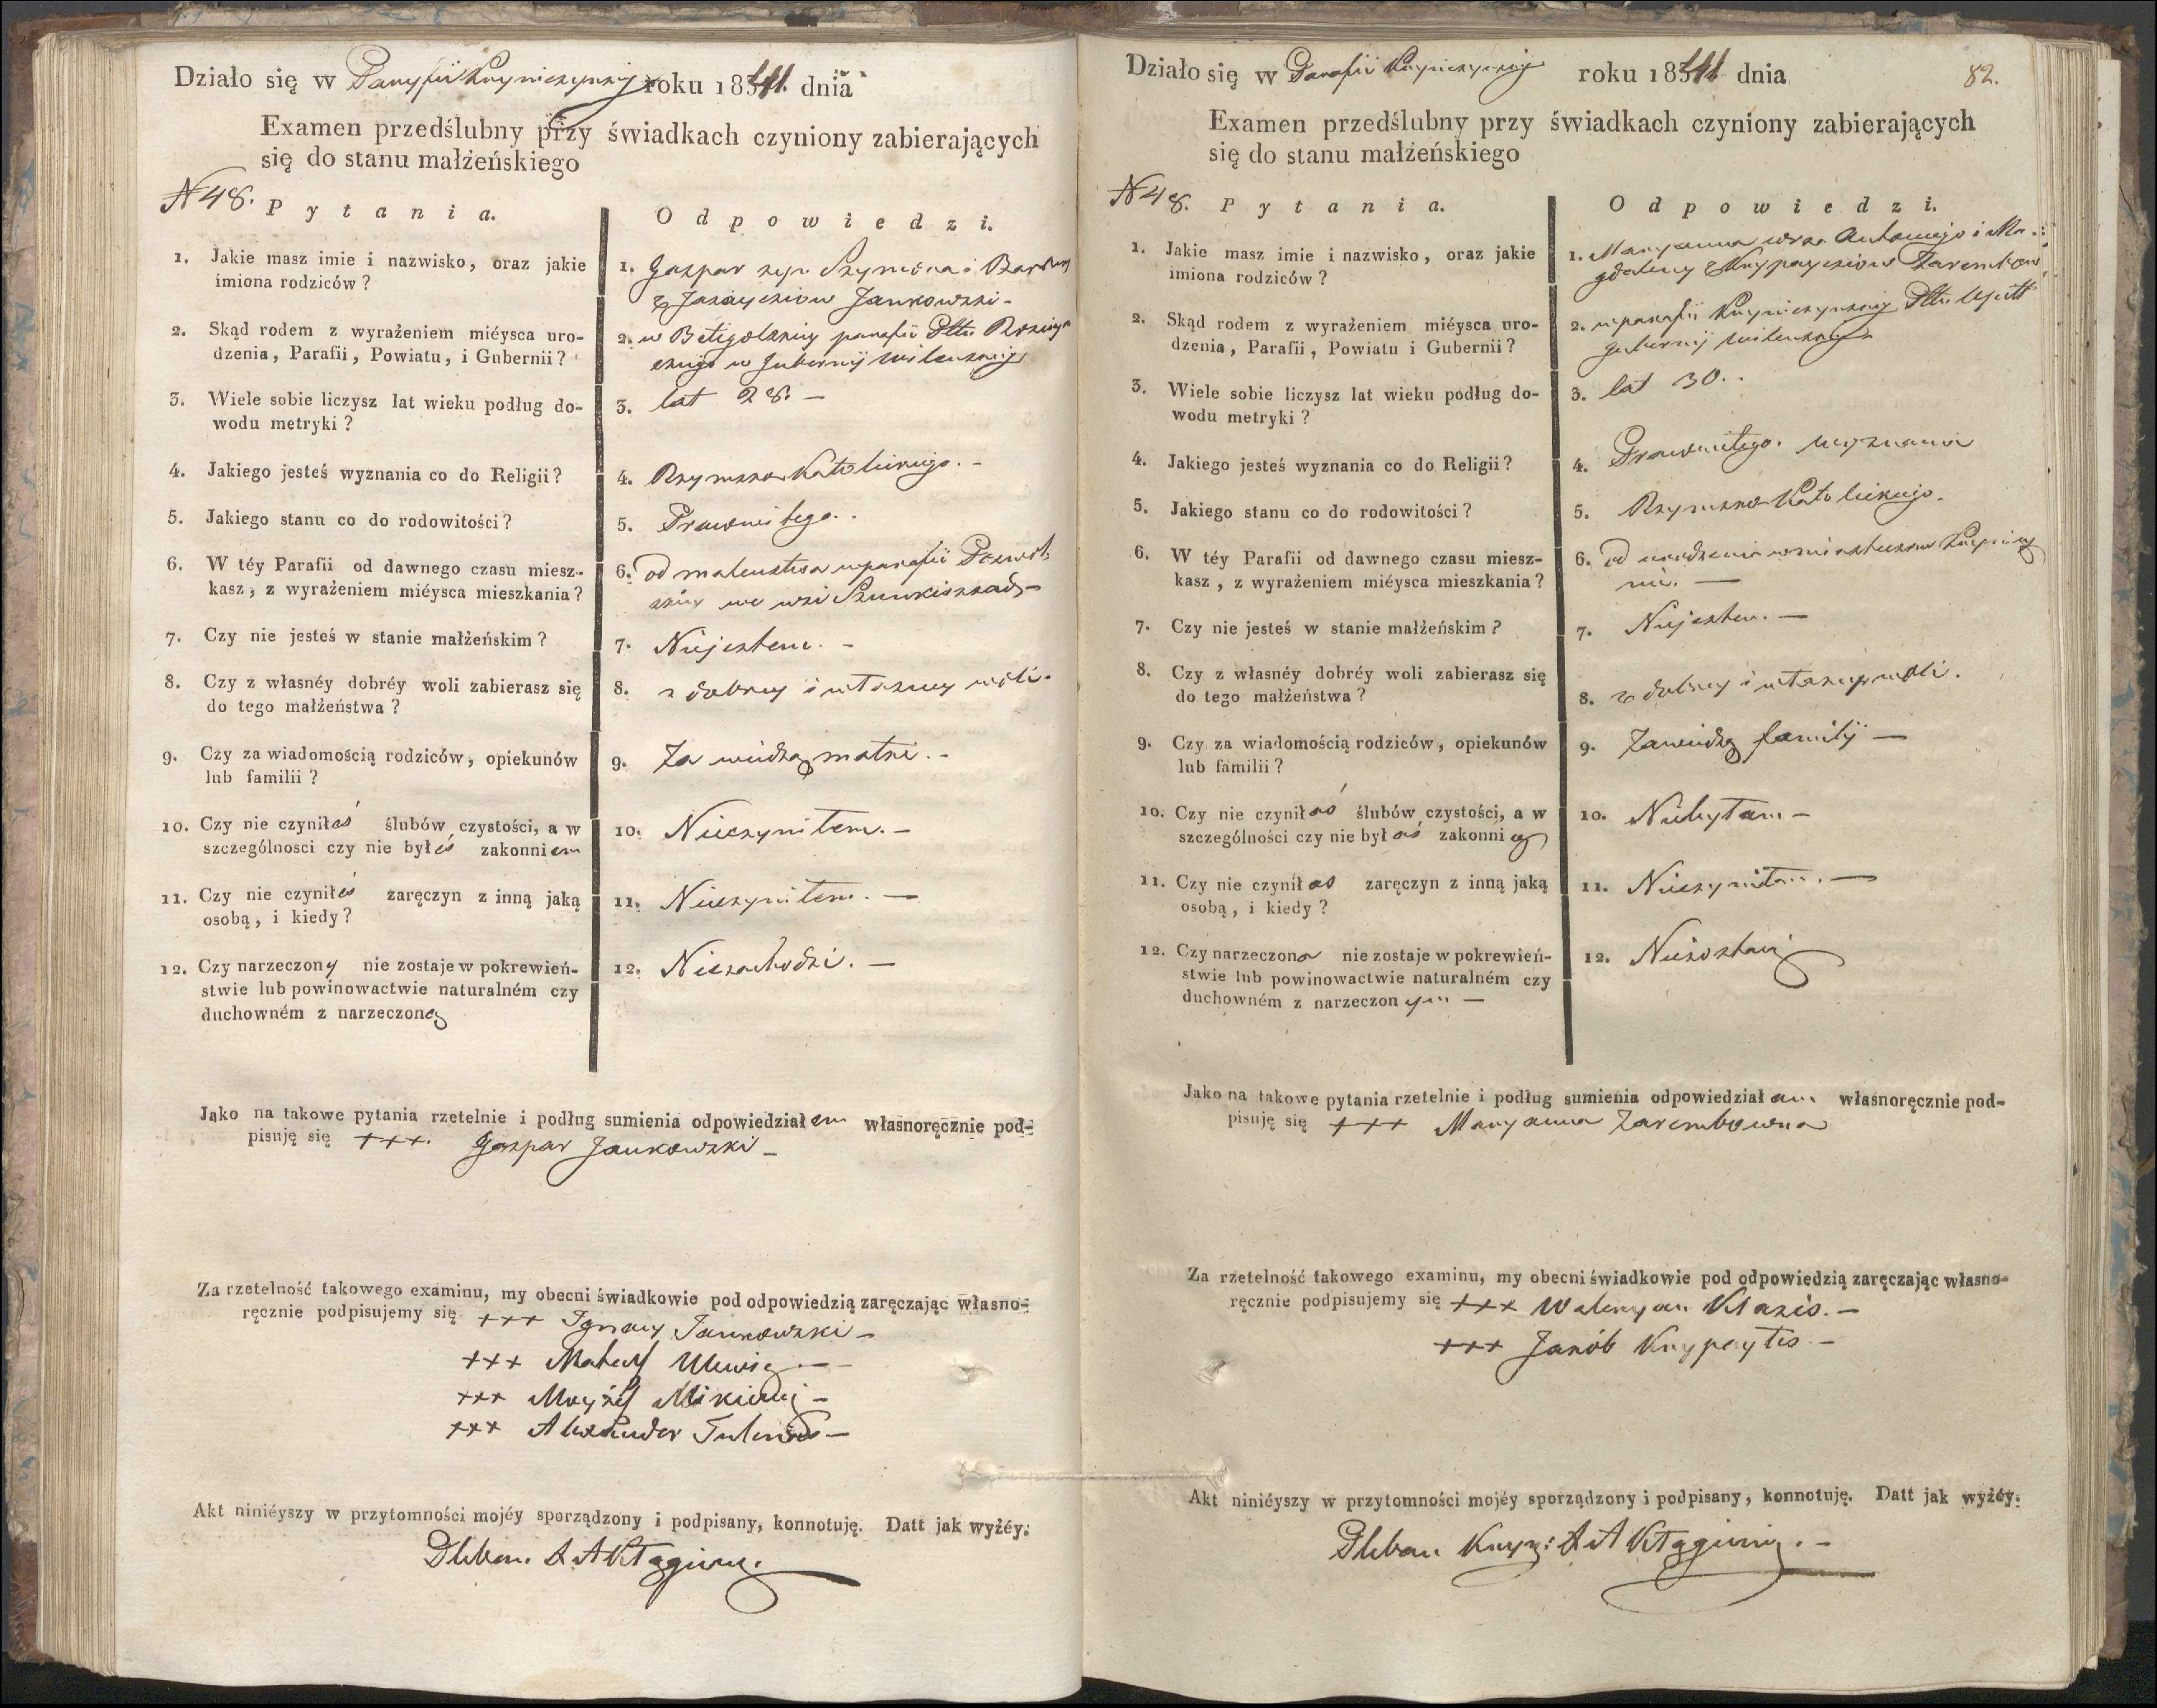 Działo się w Parafii Krynicżynskiéy roku 1841. dnia
Examen przedślubny przy świadkach czyniony zabierających
się do stanu małżeńskiego
N 48. Pytania.
Odpowiedzi.
1. Jakie masz imie i nazwisko, oraz jakie
imiona rodziców?
1. Gaspar syn Szymona i Barbary
z Jankowski-
2. Skąd rodem z wyrażeniem miéysca uro-
dzenia, Parafii, Powiatu, i Gubernii?
2. w parafii Pttu
w Gubernij Wileńskiey
3. Wiele sobie liczysz lat wieku podług do-
wodu metryki?
3. lat 28. —
4. Jakiego jesteś wyznania co do Religii?
4. Rzymsko Katolickiego. -
5. Jakiego stanu co do rodowitości?
5. Prawowitego. .
6. W téy Parafii od dawnego czasu miesz-
kasz, z wyrażeniem miéysca mieszkania?
6. od maleństwa w parafii
we wsi
7. Czy nie jesteś w stanie małżeńskim?
7. Niejestem. -
8. Czy z własnéy dobréy woli zabierasz się
do tego małżeństwa?
8. z dobrey i własney woli.
9. Czy za wiadomością rodziców, opiekunów
lub familii?
9. Za wiedzą matki. -
10. Czy nie czyniłeś ślubów czystości, a w
szczególnosci czy nie byłeś zakonniem
10. Nieczyniłem. -
11. Czy nie czyniłeś zaręczyn z inną jaką
osobą, i kiedy?
11. Nieczyniłem. —
12. Czy narzeczony nie zostaje w pokrewień-
stwie lub powinowactwie naturalném czy
duchowném z narzeczoną
12. Niezachodzi. —
Jako na takowe pytania rzetelnie i podług sumienia odpowiedziałem własnoręcznie pod-
pisuję się +++. Gaspar Jankowski -
Za rzetelność takowego examinu, my obecni świadkowie pod odpowiedzią zaręczając własno-
ręcznie podpisujemy się +++ Ignacy Jankowski -
+++ Mateusz
+++
+++ Alexander
Akt niniéyszy w przytomności mojéy sporządzony i podpisany, konnotuję. Datt jak wyżéy.
Pleban
82.
Działo się w Parafii roku 1841 dnia
Examen przedślubny przy świadkach czyniony zabierających
się do stanu małżeńskiego
N 48. Pytania.
Odpowiedzi.
1. Jakie masz imie i nazwisko, oraz jakie
imiona rodziców?
1. Maryanna Antoniego i Ma-
gdaleny z
2. Skąd rodem z wyrażeniem miéysca uro-
dzenia, Parafii, Powiatu i Gubernii?
2. w parafii Pttu
gubernij Wileńskiey
3. Wiele sobie liczysz lat wieku podług do-
wodu metryki?
3. lat 30. .
4. Jakiego jesteś wyznania co do Religii?
4. Prawowitego. wyznania
5. Jakiego stanu co do rodowitości?
5. Rzymsko Katolickiego.
6. W téy Parafii od dawnego czasu miesz-
kasz, z wyrażeniem miéysca mieszkania?
6. od urodzenia w miasteczku
7. Czy nie jesteś w stanie małżeńskim?
7. Niejestem. —
8. Czy z własnéy dobréy woli zabierasz się
do tego małżeństwa?
8. z dobrey i własney woli.
9. Czy za wiadomością rodziców, opiekunów
lub familii?
9. Zawiedzą familij —
10. Czy nie czyniłaś ślubów czystości, a w
szczególności czy nie byłaś zakonnicą
10. Niebyłam -
11. Czy nie czyniłaś zaręczyn z inną jaką
osobą, i kiedy?
11. Nieczyniłam. —
12. Czy narzeczona nie zostaje w pokrewień-
stwie lub powinowactwie naturalném czy
duchowném z narzeczonym —
12. Niezostaię
Jako na takowe pytania rzetelnie i podług sumienia odpowiedziałam własnoręcznie pod-
pisuję się +++ Maryanna Zarembowna
Za rzetelność takowego examinu, my obecni świadkowie pod odpowiedzią zaręczając własno-
ręcznie podpisujemy się +++ Waleryan
+++ Jakób Knypaytis -
Akt niniéyszy w przytomności mojéy sporządzony i podpisany, konnotuję. Datt jak wyżéy.
Pleban